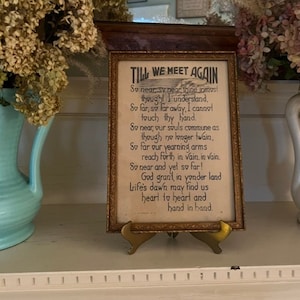 TILL WE MEET AGAIN
So near, so near,
though I understand,
So far, so far away, I cannot
touch thy hand.
So near, our souls commune as
though no longer twain,
So far our yearning arms
reach forth in vain, in vain.
So near and yet so far!
God grant, in yonder land
Life's dawn may find us
heart to heart and
hand in hand.